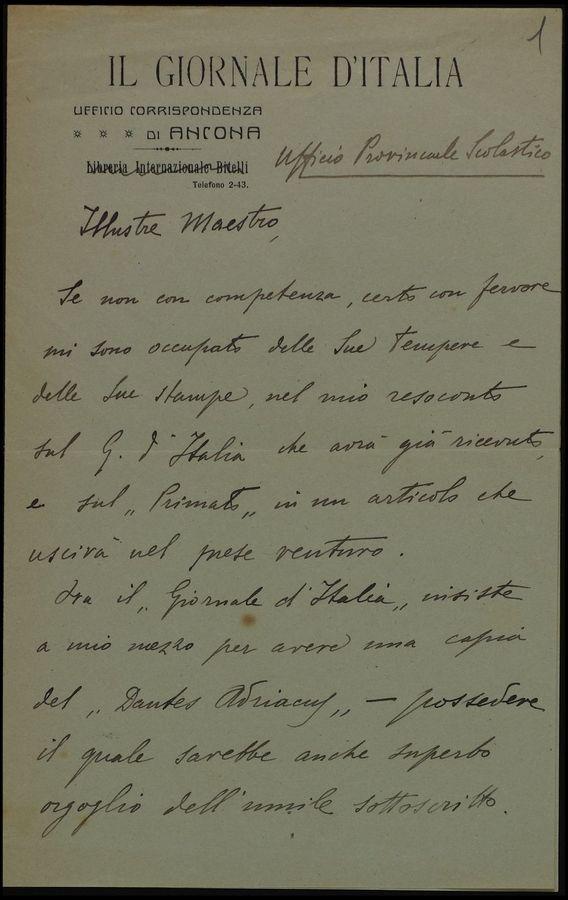 1
IL GIORNALE D'ITALIA
UFFICIO CORRISPONDENZA
DI ANCONA
Libreria Internazionale Bitelli
Telefono 2-43.
Ufficio Provinciale Scolastico
Illustre Maestro,
Se non con competenza, certo con fervore
mi sono occupato delle Sue Tempere e
delle Sue stampe, nel mio resoconto
sul G. d'Italia che avrà già ricevuto,
e sul „Primato„ in un articolo che
uscirà nel mese venturo.
Ora il „Giornale d'Italia„ insiste
a mio mezzo per avere una copia
del „Dantes Adriacus„ — possedere
il quale sarebbe anche superbo
orgoglio dell'umile sottoscritto.